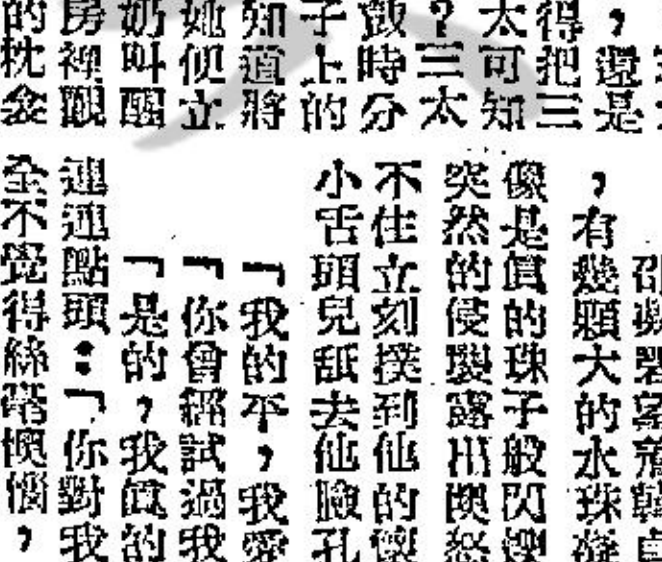 ，還是
得把三
太可知
？三太
時分
子上的
知道將
她便立
奶叫醒
房裡
的枕衾
，有幾顆大的水珠
像是真的珠子般閃爍
突然的侵襲露出
不住立刻撲到他的懷
小舌頭兒舐去他臉孔
「我的平，我愛
「你曾經試過我
「是的，我真的
連連點頭：「你對我
全不覺得絲毫懊惱，